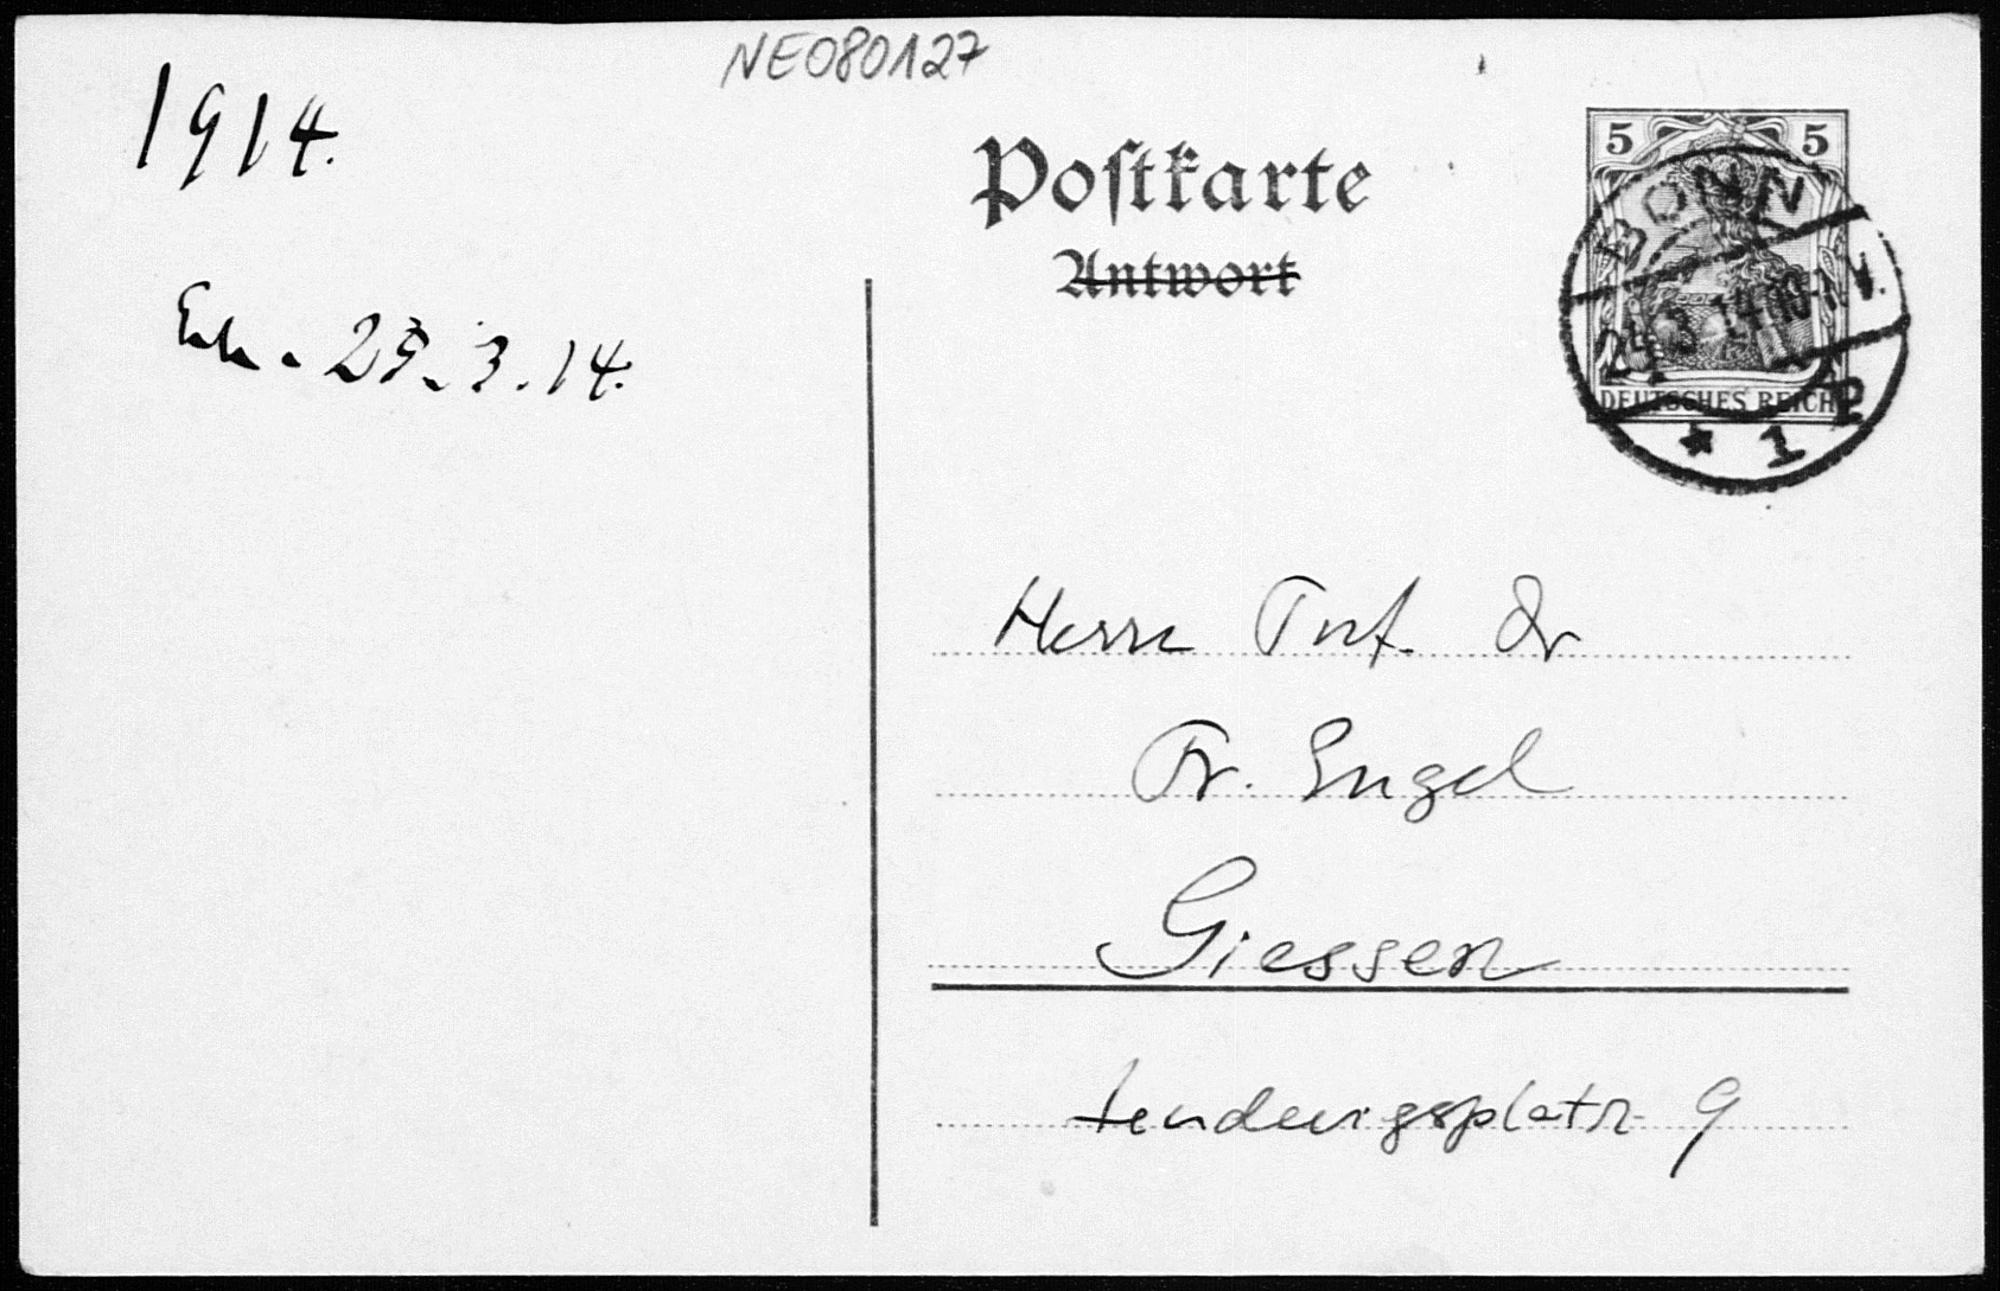 NE080127
1914.
Postkarte
Antwort
5 5
BONN
24.3.14.10-11 V.
DEUTSCHES REICH
* 1
Erh. 25.3.14.
Herrn Prof. Dr
Fr. Engel
Giessen
Ludwigsplatz 9